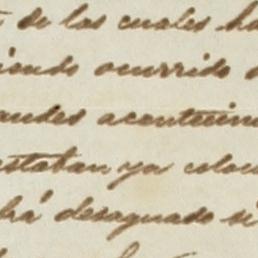 de las cuales ha
iendo ocurrido
andes acontecim
estaban ya coloc
brá desaguado si